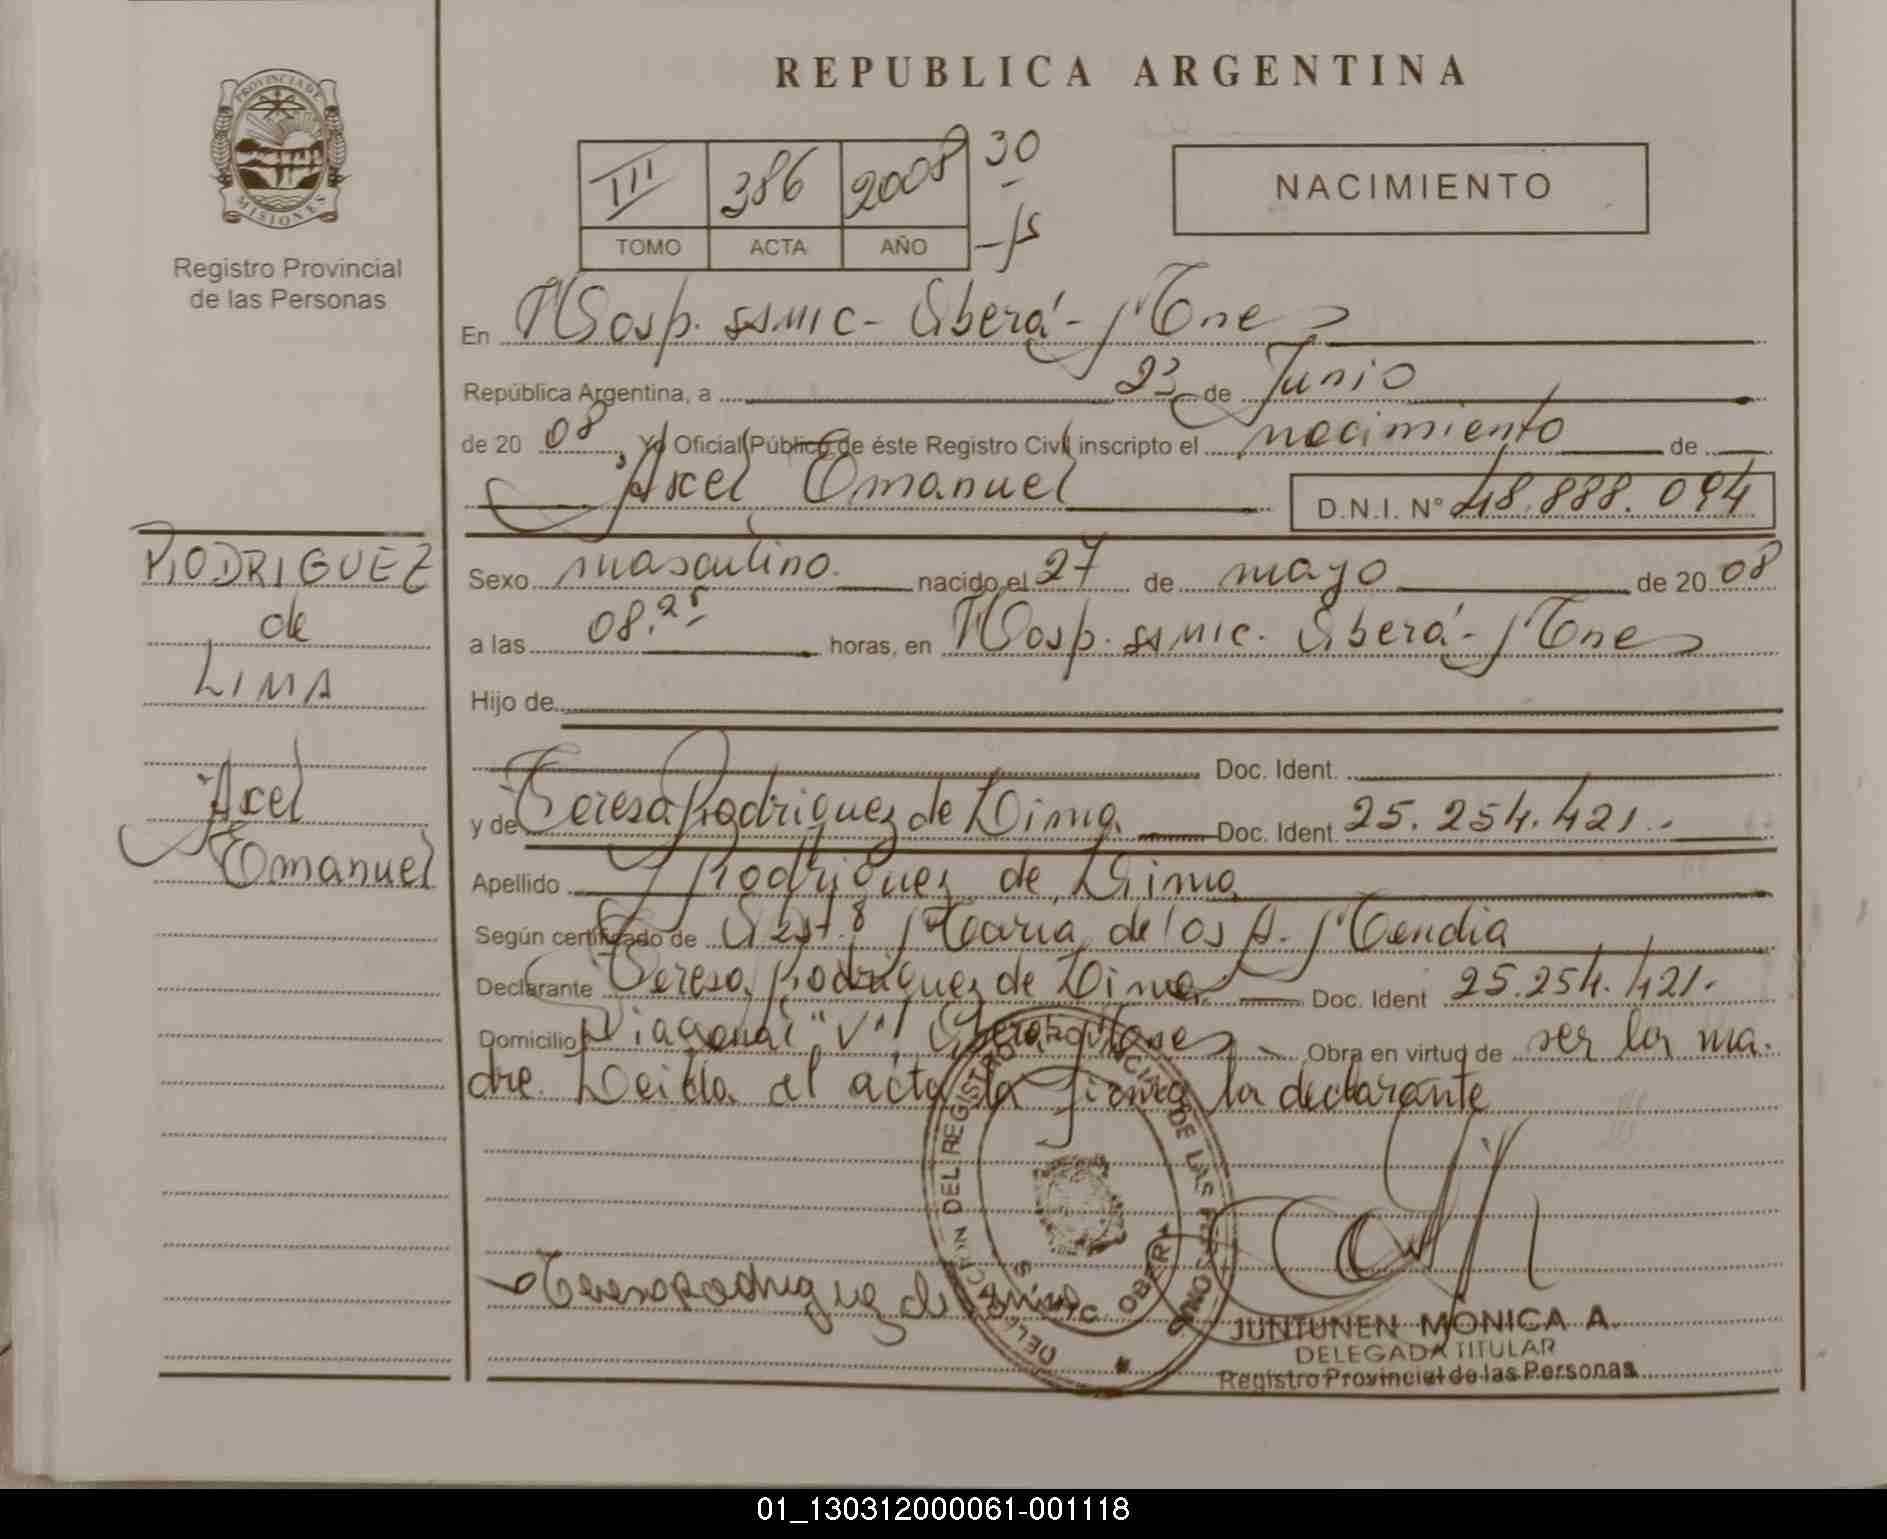 PROVINCIA DE
MISIONES
Registro Provincial
de las Personas
REPUBLICA ARGENTINA
III 386 2008 30
TOMO ACTA AÑO -15
NACIMIENTO
En Hosp. SSMIC - Oberá - Mnes
República Argentina, a 23 de Junio
de 2008, Yo Oficial Público de éste Registro Civil inscripto el nacimiento de
Axel Emanuel D.N.I. Nº 48.888.094
RODRIGUEZ
de
LIMA
Axel
Emanuel
Sexo masculino. nacido el 27 de mayo de 2008
a las 08.25 horas, en Hosp. SSMIC. Oberá - Mnes
Hijo de
Doc. Ident.
y de Teresa Rodriguez de Lima Doc. Ident. 25.254.421.-
Apellido Rodriguez de Lima
Según certificado de Obst.ª Maria de los A. Mendia
Declarante Teresa Rodriguez de Lima Doc. Ident 25.254.421.
Domicilio Diagonal "V" Oberá Mnes Obra en virtud de ser la ma.
dre. Leida el acta la firma la declarante
Teresa Rodriguez de Lima
DELEGACION DEL REGISTRO PROVINCIAL DE LAS PERSONAS
OBERA
JUNTUNEN MONICA A.
DELEGADA TITULAR
Registro Provincial de las Personas
01_130312000061-001118